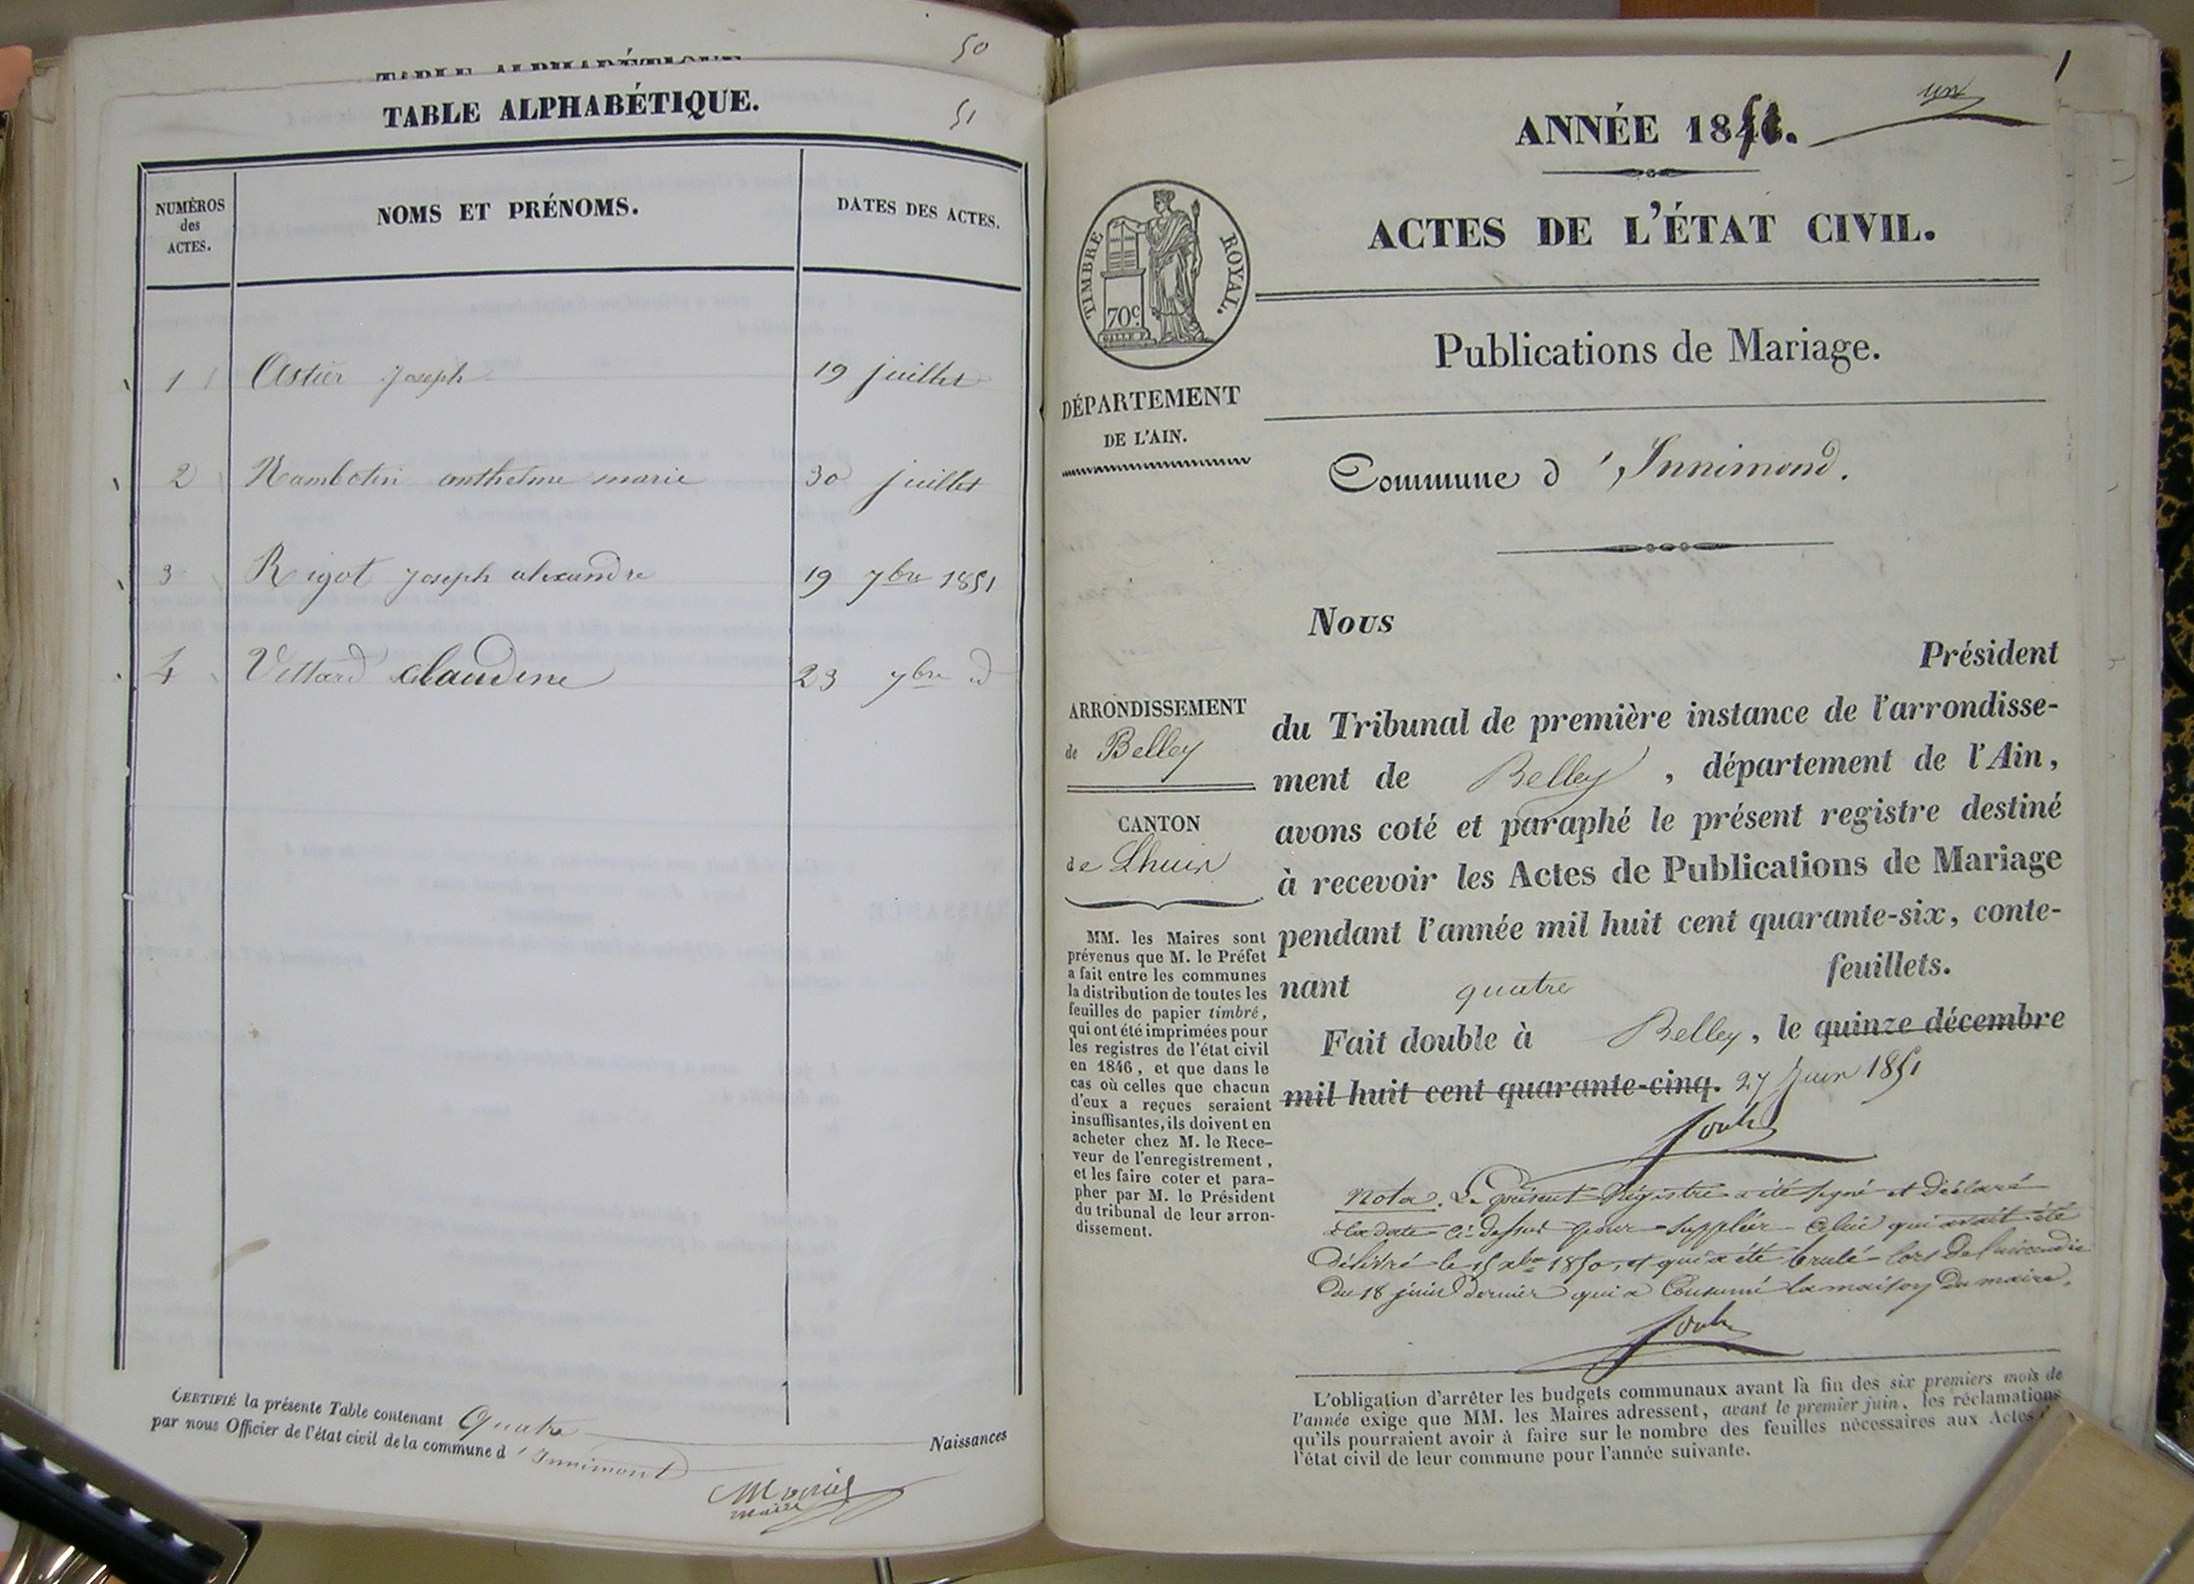 50
TABLE ALPHABÉTIQUE.
51
NUMÉROS
des
ACTES.
NOMS ET PRÉNOMS.
DATES DES ACTES.
1 Astier Joseph 19 juillet
2 Rambotin anthelme marie 30 juillet
3 Rigot Joseph alexandre 19 7bre 1851
4 Villard Claudine 23 7bre d
CERTIFIÉ la présente Table contenant Quatre Naissances
par nous Officier de l'état civil de la commune d'Innimont
maire
1
un
ANNÉE 1851.
ACTES DE L'ÉTAT CIVIL.
TIMBRE ROYAL.
70c
Publications de Mariage.
DÉPARTEMENT
DE L'AIN.
Commune d'Innimond.
Nous
Président
du Tribunal de première instance de l'arrondisse-
ment de Belley, département de l'Ain,
avons coté et paraphé le présent registre destiné
à recevoir les Actes de Publications de Mariage
pendant l'année mil huit cent quarante-six, conte-
nant quatre feuillets.
Fait double à Belley, le quinze décembre
mil huit cent quarante-cinq. 27 Juin 1851
ARRONDISSEMENT
de Belley
CANTON
de Lhuis
MM. les Maires sont
prévenus que M. le Préfet
a fait entre les communes
la distribution de toutes les
feuilles de papier timbré,
qui ont été imprimées pour
les registres de l'état civil
en 1846, et que dans le
cas où celles que chacun
d'eux a reçues seraient
insuffisantes, ils doivent en
acheter chez M. le Rece-
veur de l'enregistrement,
et les faire coter et para-
pher par M. le Président
du tribunal de leur arron-
dissement.
Nota. Le présent Régistre a été signé et déclaré
à la date ci-dessus pour suppléer celui qui avait été
délivré le 15 xbre 1850, et qui a été brulé lors de l'incendie
du 18 juin dernier qui a consumé la maison du maire.
L'obligation d'arrêter les budgets communaux avant la fin des six premiers mois de
l'année exige que MM. les Maires adressent, avant le premier juin, les réclamations
qu'ils pourraient avoir à faire sur le nombre des feuilles nécessaires aux Actes
l'état civil de leur commune pour l'année suivante.